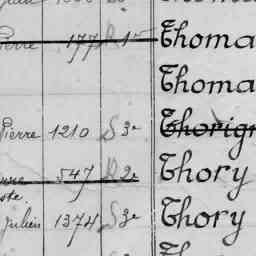 Pierre 177 R 1er Thoma
Thoma
Pierre 1210 S 3e Thorign
547 R 2e Thory
ste.
Julien 1374 S 3e Thory